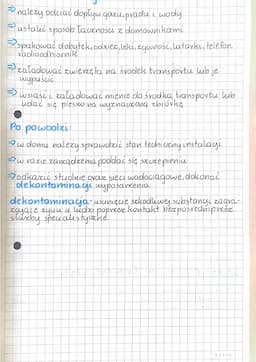 ⇒ należy odciąć dopływ gazu, prądu i wody
⇒ ustalić sposób łączności z domownikami
⇒ spakować dobytek, odzież, leki, żywność, latarki, telefon
radioodbiornik
⇒ załadować zwierzęta na środek transportu lub je
wypuścić
⇒ wsiąść i załadować mienie do środka transportu lub
udać się pieszo na wyznaczoną zbiórkę
Po powodzi:
⇒ w domu należy sprawdzić stan techniczny instalacji
⇒ w razie zarządzenia poddać się szczepieniu
⇒ odkazić studnie oraz sieci wodociągowe, dokonać
dekontaminacji wyposażenia.
dekontaminacja - usunięcie szkodliwej substancji zagra-
żającej życiu u ludzi poprzez kontakt bezpośredni przez
służby specjalistyczne.